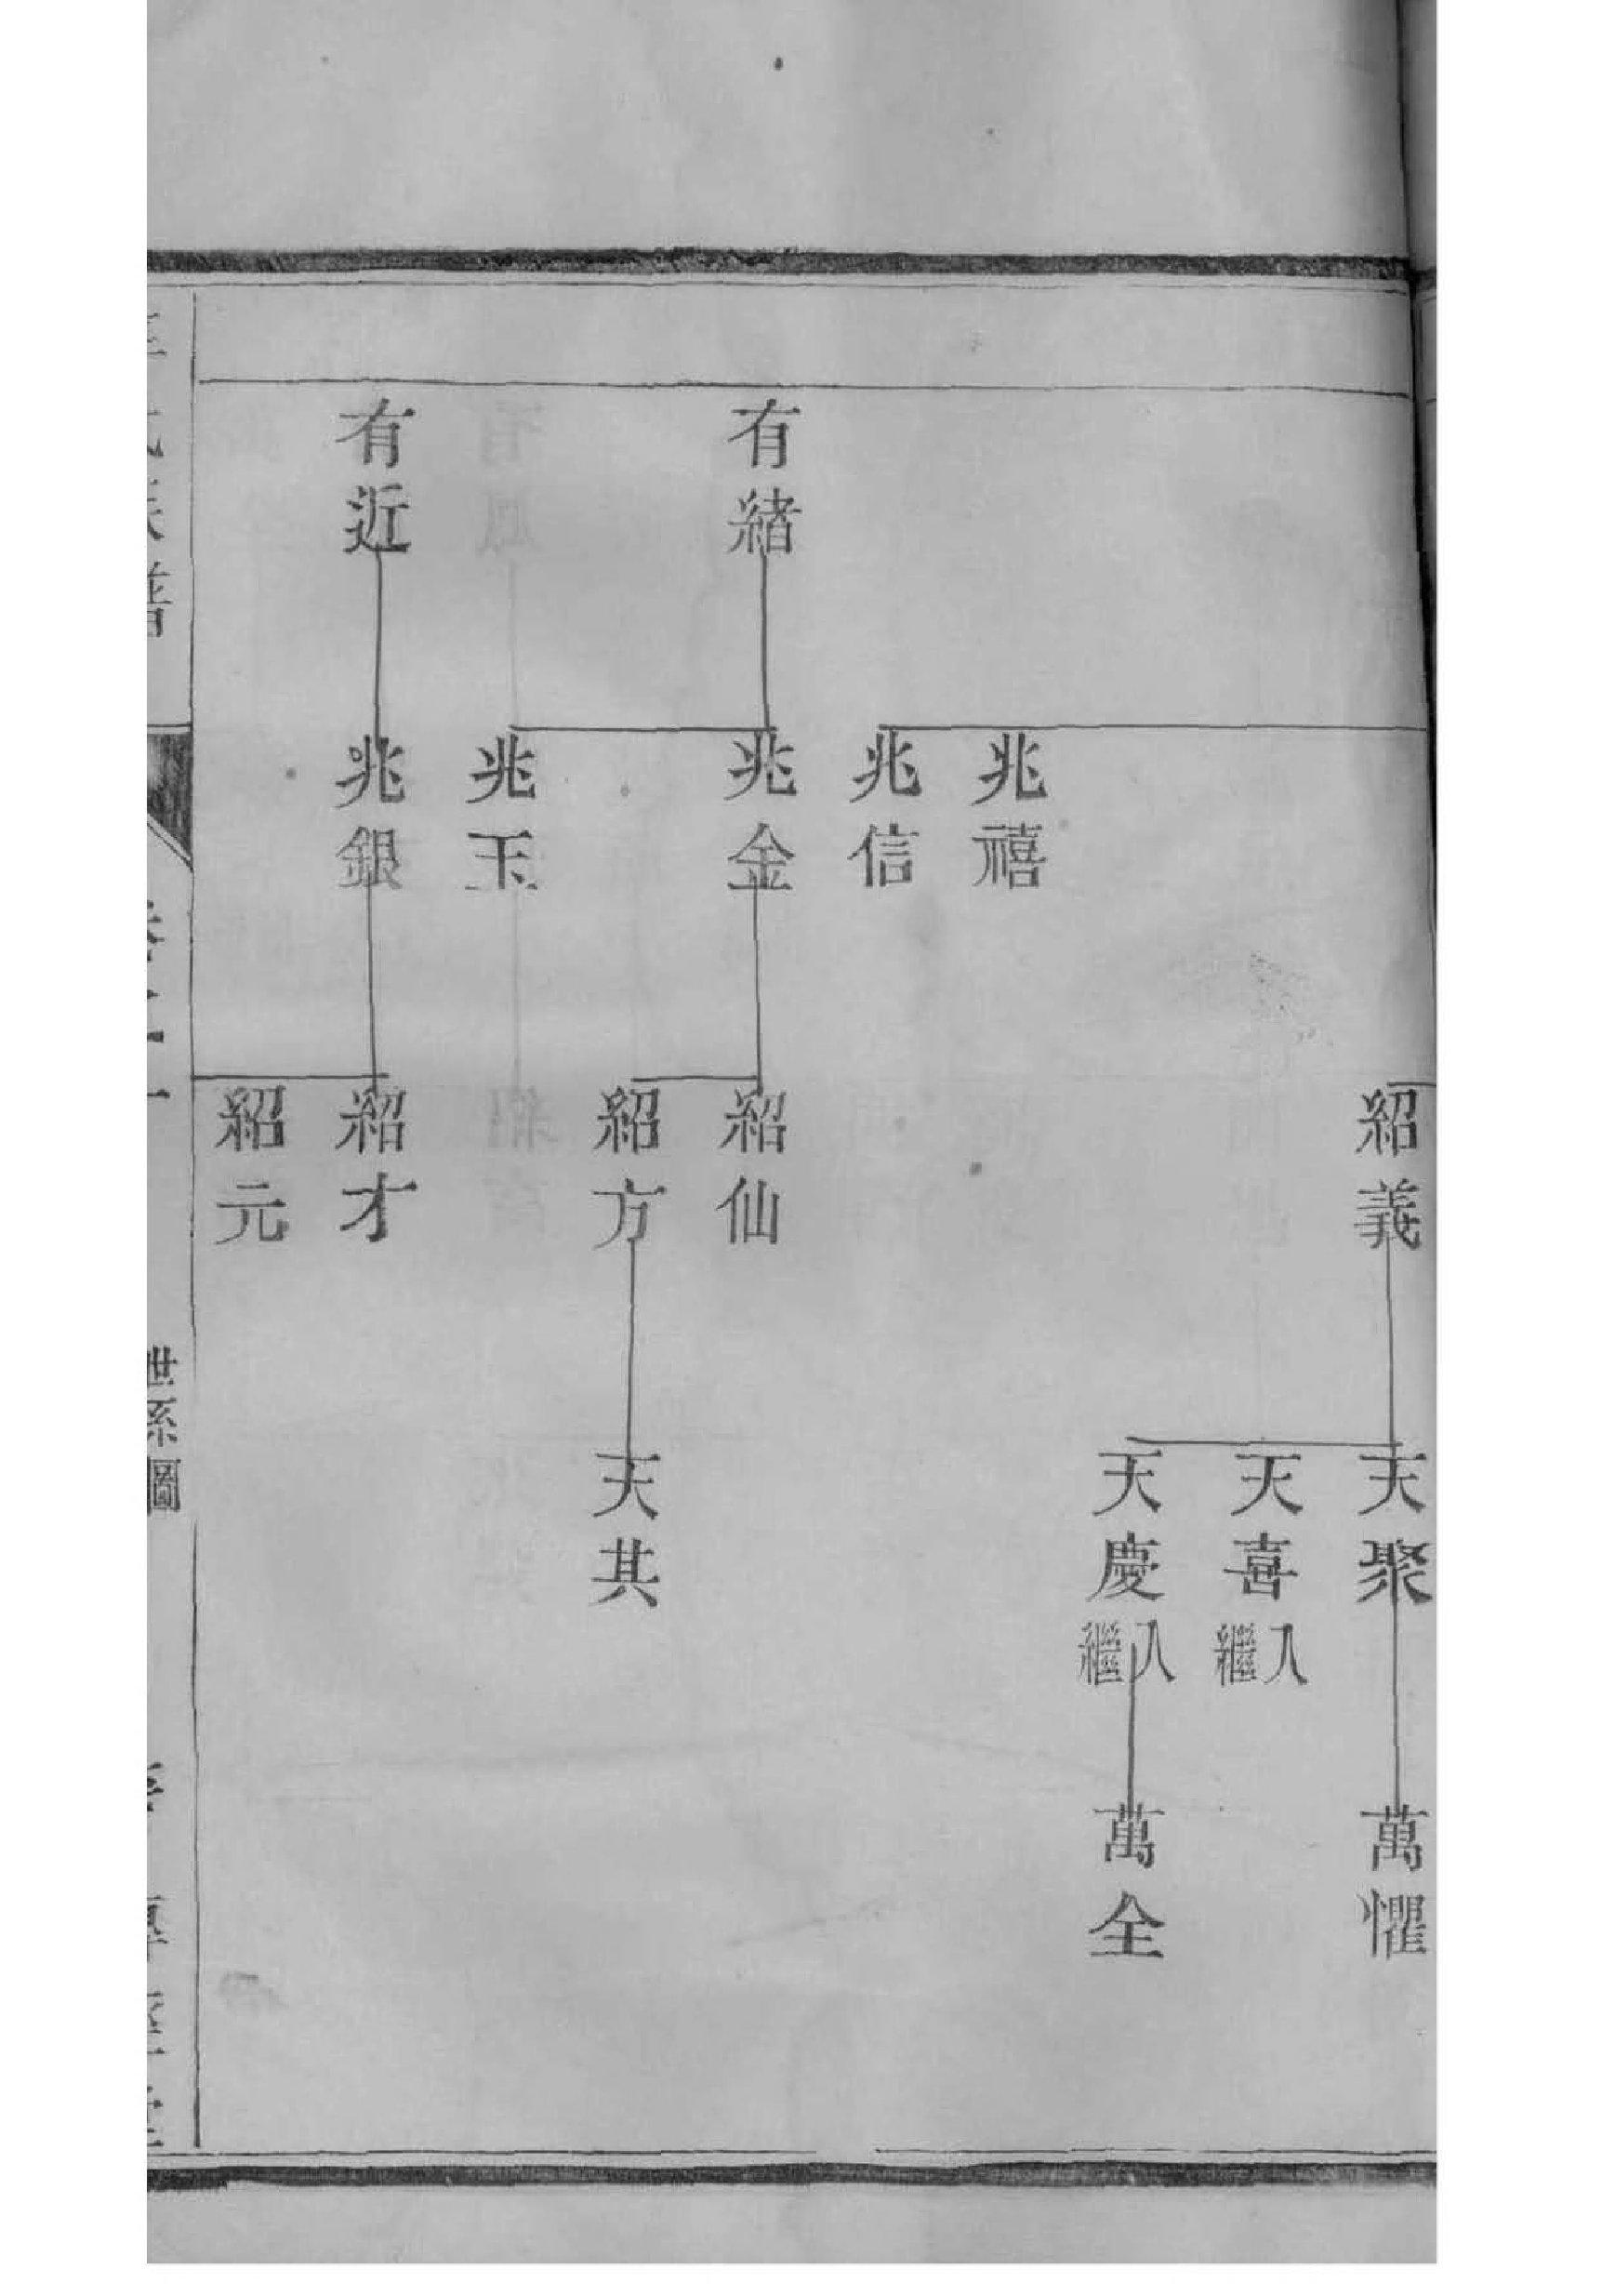 紹義
天聚
萬懼
天喜
入繼
天慶
入繼
萬全
兆禧
兆信
有緒
兆金
紹仙
紹方
天其
兆玉
有近
兆銀
紹才
紹元
世系圖